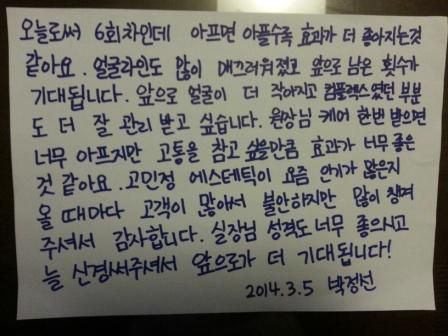 오늘로써 6회차인데 아프면 아플수록 효과가 더 좋아지는것
같아요. 얼굴라인도 많이 매끄러워졌고 앞으로 남은 횟수가
기대됩니다. 앞으로 얼굴이 더 작아지고 컴플렉스였던 부분
도 더 잘 관리 받고 싶습니다. 원장님 케어 한번 받으면
너무 아프지만 고통을 참고 싶을만큼 효과가 너무 좋은
것 같아요. 고민정 에스테틱이 요즘 인기가 많은지
올 때마다 고객이 많아서 불안하지만 많이 챙겨
주셔서 감사합니다. 실장님 성격도 너무 좋으시고
늘 신경써주셔서 앞으로가 더 기대됩니다!
2014.3.5 박정선